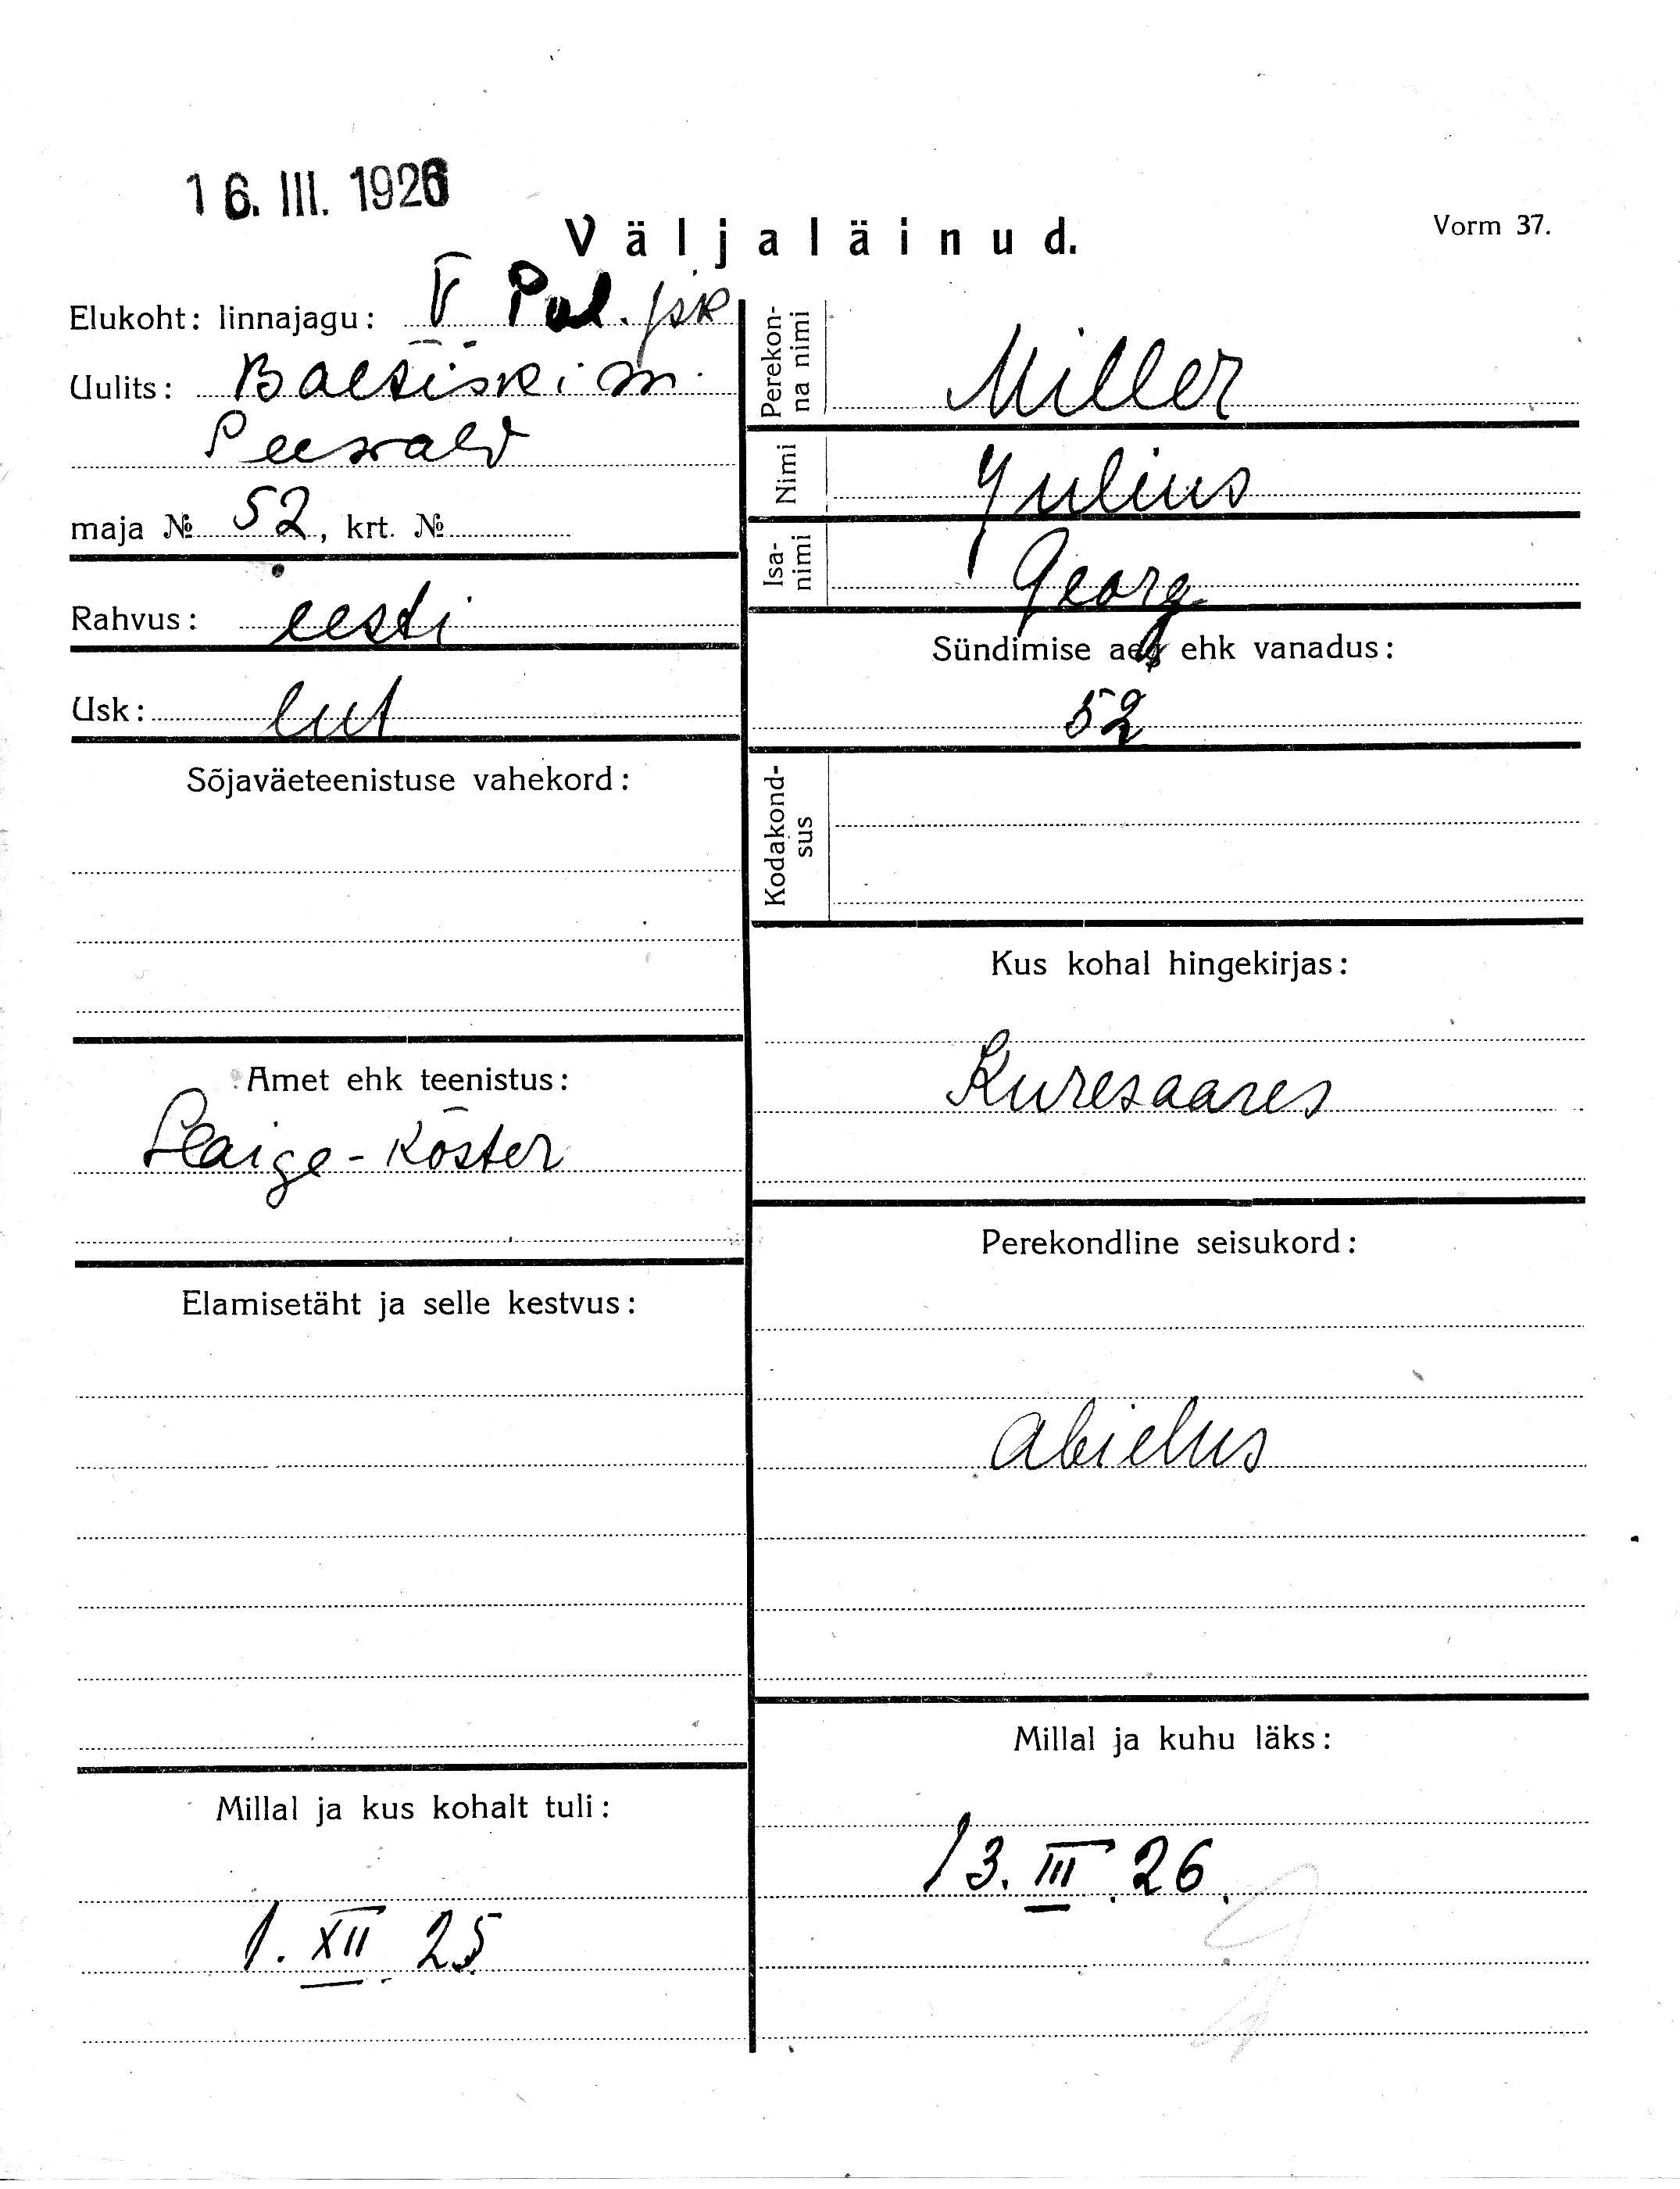 16. III. 1926
Väljaläinud.
Vorm 37.
Elukoht: linnajagu: V Pol. jsk
Uulits: Baltiski m.
Seewald
maja № 52, krt. №
Rahvus: eesti
Usk: lut
Sõjaväeteenistuse vahekord:
Amet ehk teenistus:
Haige-Köster
Elamisetäht ja selle kestvus:
Millal ja kus kohalt tuli:
1. XII. 25
Perekonna nimi Miller
Nimi Julius
Isanimi Georg
Sündimise aeg ehk vanadus:
52
Kodakondsus
Kus kohal hingekirjas:
Kuresaares
Perekondline seisukord:
abielus
Millal ja kuhu läks:
13. III. 26.